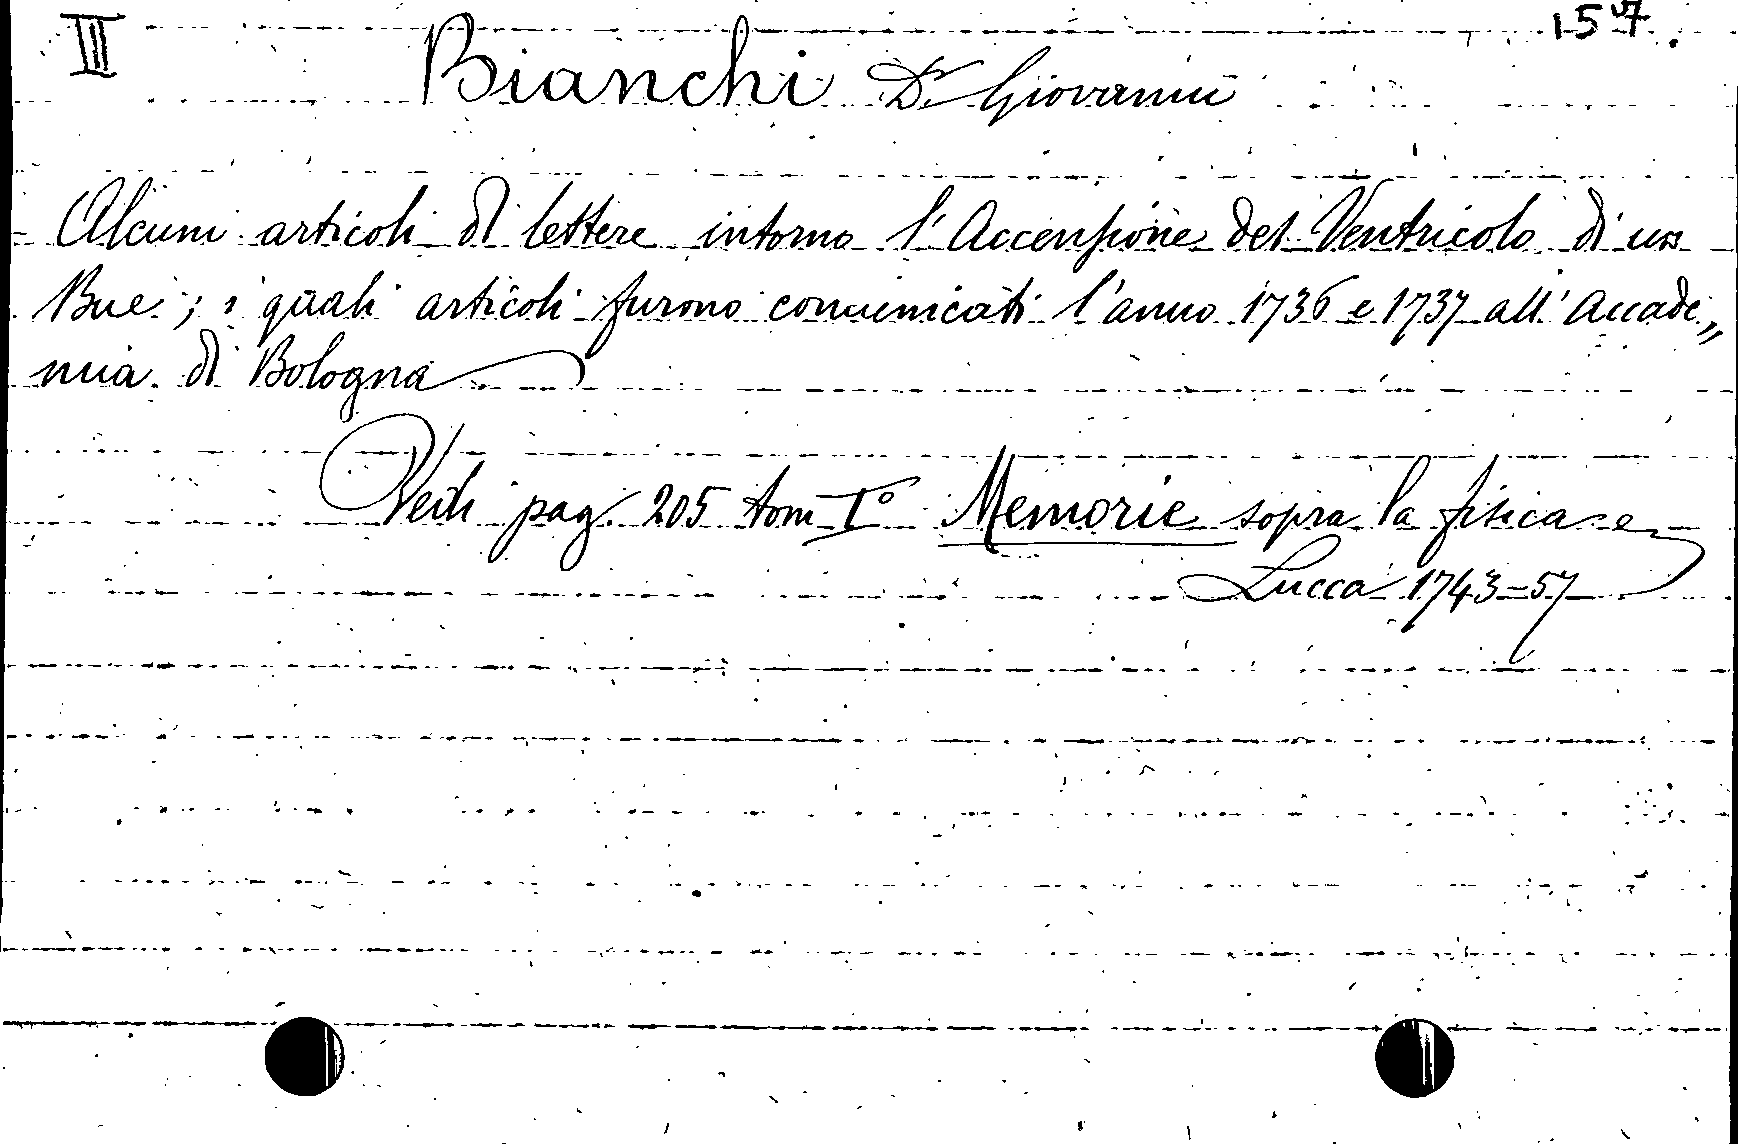 III
157.
Bianchi Dr. Giovanni
Alcuni articoli di lettere intorno l'Accensione del Ventricolo di un
Bue; i quali articoli furono comunicati l'anno 1736 e 1737 all'Accade„
mia di Bologna
Vedi pag. 205 tom I° Memorie sopra la fisica e
Lucca 1743=57